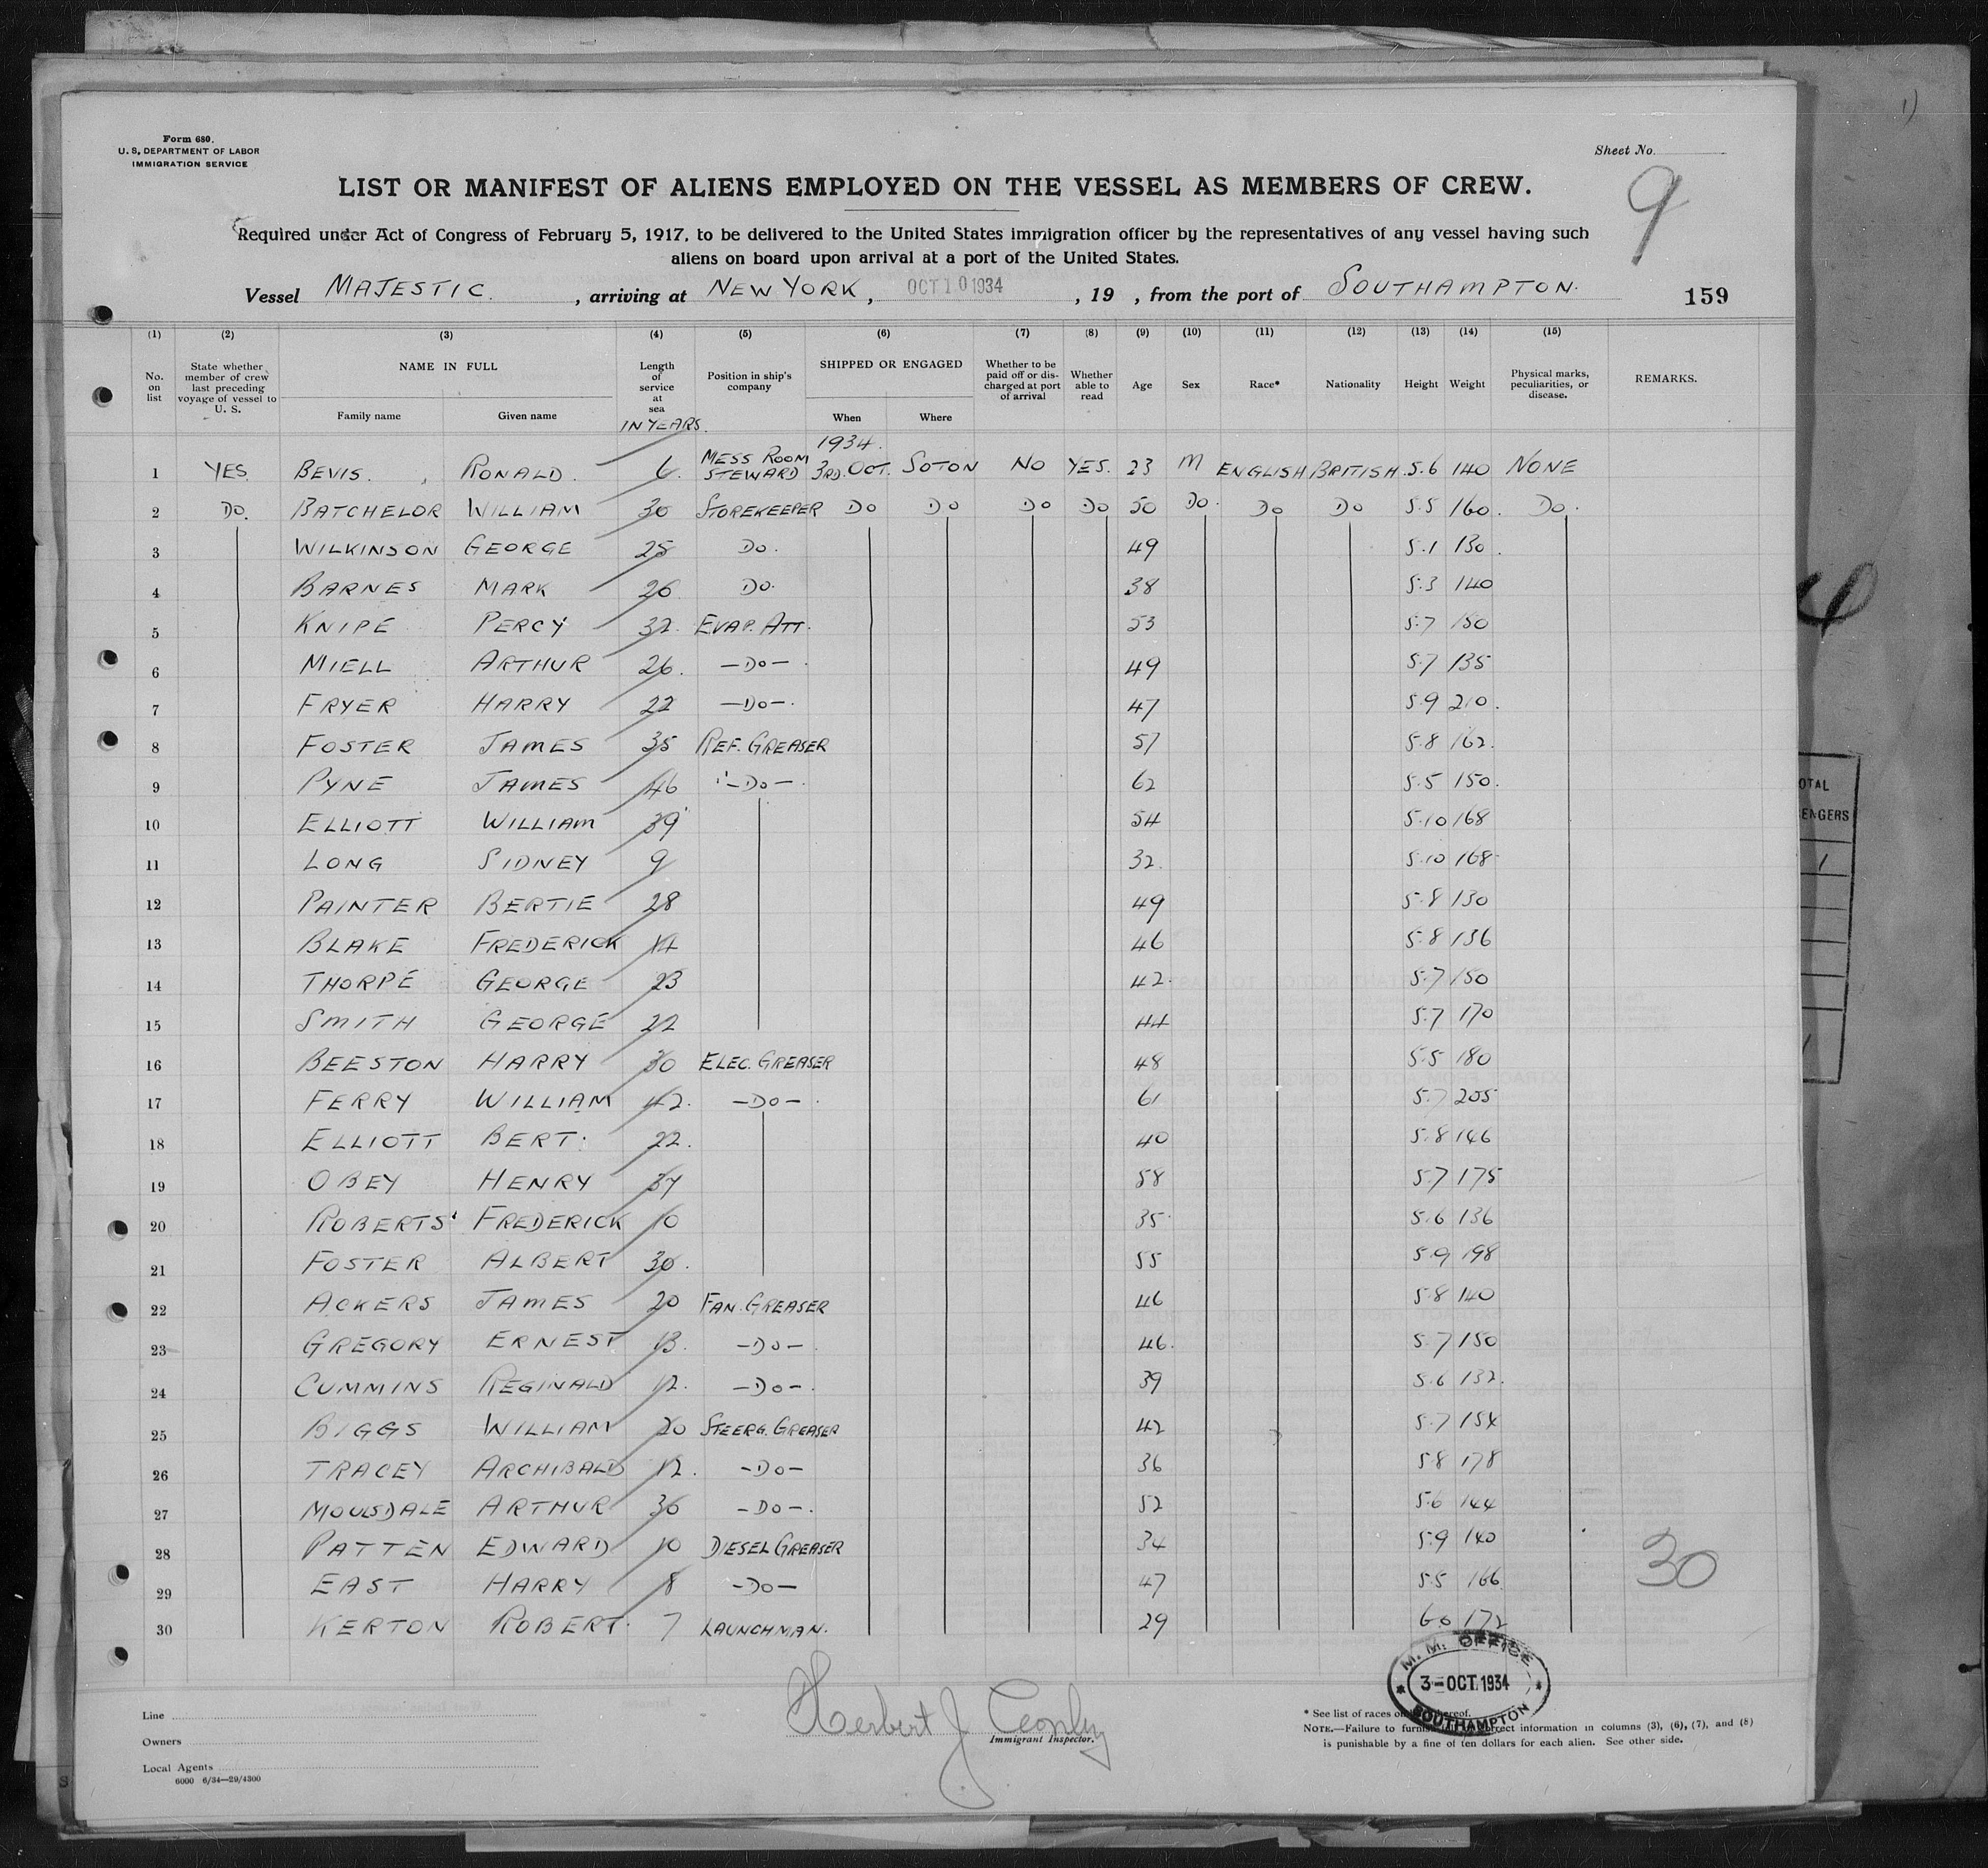 Form 680.
U. S. DEPARTMENT OF LABOR
IMMIGRATION SERVICE
Sheet No.
9
LIST OR MANIFEST OF ALIENS EMPLOYED ON THE VESSEL AS MEMBERS OF CREW.
Required under Act of Congress of February 5, 1917, to be delivered to the United States immigration officer by the representatives of any vessel having such
aliens on board upon arrival at a port of the United States.
Vessel MAJESTIC. , arriving at NEW YORK, OCT 10 1934 , 19 , from the port of SOUTHAMPTON. 159
(1) (2) (3) (4) (5) (6) (7) (8) (9) (10) (11) (12) (13) (14) (15)
No. on list State whether member of crew last preceding voyage of vessel to U. S. NAME IN FULL Family name Given name Length of service at sea IN YEARS. Position in ship's company SHIPPED OR ENGAGED When Where Whether to be paid off or discharged at port of arrival Whether able to read Age Sex Race* Nationality Height Weight Physical marks, peculiarities, or disease. REMARKS.
1934.
1 YES BEVIS. RONALD. 6 MESS ROOM STEWARD 3RD. OCT. SOTON NO YES. 23 M ENGLISH BRITISH 5.6 140 NONE
2 DO. BATCHELOR WILLIAM 30 STOREKEEPER DO DO DO DO 50 DO. DO DO 5.5 160. DO.
3 WILKINSON GEORGE 25 DO. 49 5.1 130.
4 BARNES MARK 26 DO. 38 5.3 140
5 KNIPE PERCY 32. EVAP. ATT. 53 5.7 150
6 MIELL ARTHUR 26. -DO-. 49 5.7 135
7 FRYER HARRY 22 -DO-. 47 5.9 210.
8 FOSTER JAMES 35 REF. GREASER 57 5.8 162.
9 PYNE JAMES 46 -DO-. 62 5.5 150.
10 ELLIOTT WILLIAM 39 54 5.10 168
11 LONG SIDNEY 9 32. 5.10 168
12 PAINTER BERTIE 28 49 5.8 130
13 BLAKE FREDERICK 14 46 5.8 136
14 THORPE GEORGE 23 42. 5.7 150
15 SMITH GEORGE 22 44 5.7 170
16 BEESTON HARRY 30 ELEC. GREASER 48 5.5 180
17 FERRY WILLIAM 42. -DO-. 61 5.7 205
18 ELLIOTT BERT. 22. 40 5.8 146
19 OBEY HENRY 37 58 5.7 175
20 ROBERTS FREDERICK 10 35 5.6 136
21 FOSTER ALBERT 30. 55 5.9 198
22 ACKERS JAMES 20 FAN. GREASER 46 5.8 140
23 GREGORY ERNEST 13. -DO-. 46. 5.7 150
24 CUMMINS REGINALD 12. -DO-. 39 5.6 132.
25 BIGGS WILLIAM 20 STEERG. GREASER 42 5.7 154
26 TRACEY ARCHIBALD 12. -DO- 36 5.8 178
27 MOULSDALE ARTHUR 36 -DO-. 52 5.6 144
28 PATTEN EDWARD 10 DIESEL GREASER 34 5.9 140
29 EAST HARRY 8 -DO- 47 5.5 166
30 KERTON ROBERT. 7 LAUNCHMAN. 29 6.0 172
30
M. M. OFFICE
3-OCT. 1934
SOUTHAMPTON
Line
Owners
Local Agents
6000 6/34—29/4300
Herbert J.
Immigrant Inspector.
* See list of races on hereof.
NOTE.—Failure to furnish correct information in columns (3), (6), (7), and (8)
is punishable by a fine of ten dollars for each alien. See other side.
OTAL
ENGERS
1